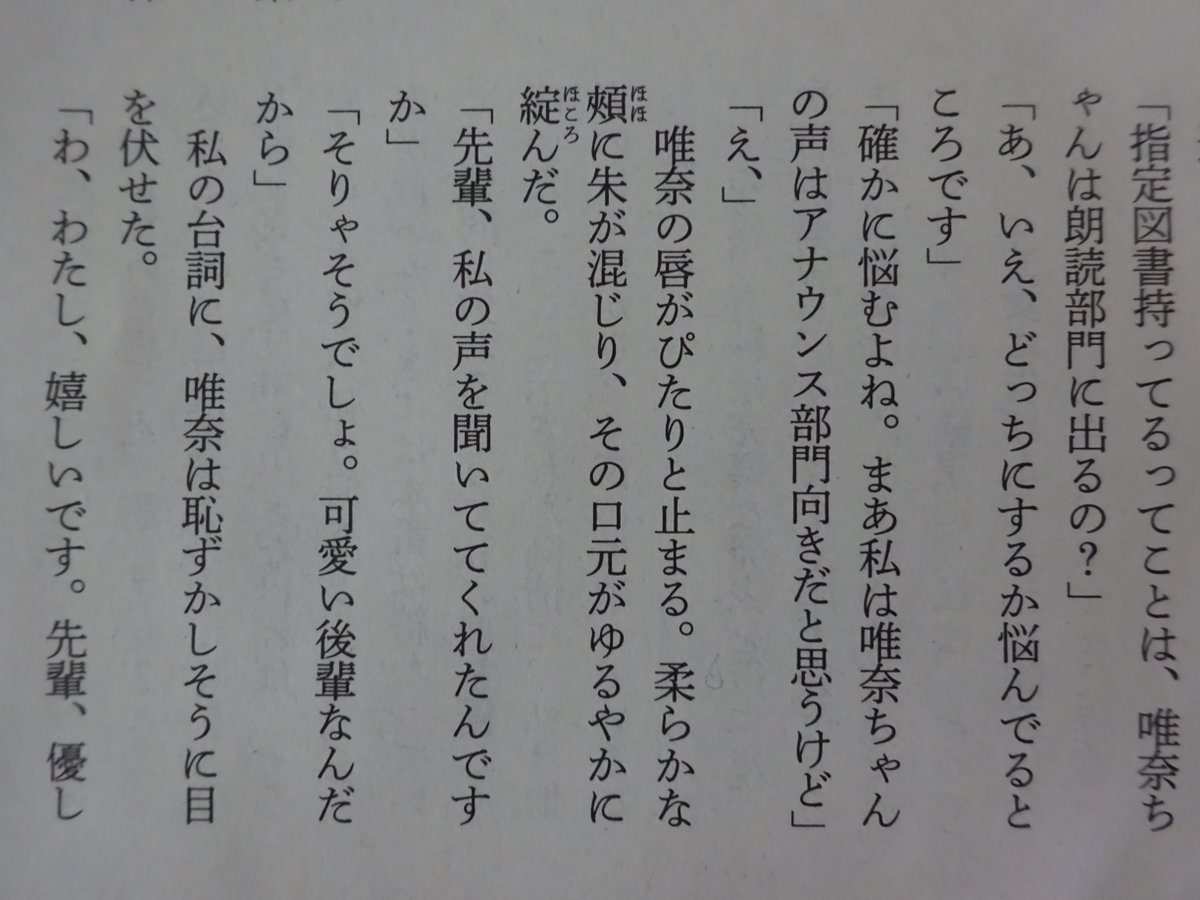 「指定図書持ってるってことは、唯奈ち
ゃんは朗読部門に出るの？」
「あ、いえ、どっちにするか悩んでると
ころです」
「確かに悩むよね。まあ私は唯奈ちゃん
の声はアナウンス部門向きだと思うけど」
「え、」
唯奈の唇がぴたりと止まる。柔らかな
頰に朱が混じり、その口元がゆるやかに
綻んだ。
「先輩、私の声を聞いててくれたんです
か」
「そりゃそうでしょ。可愛い後輩なんだ
から」
私の台詞に、唯奈は恥ずかしそうに目
を伏せた。
「わ、わたし、嬉しいです。先輩、優し